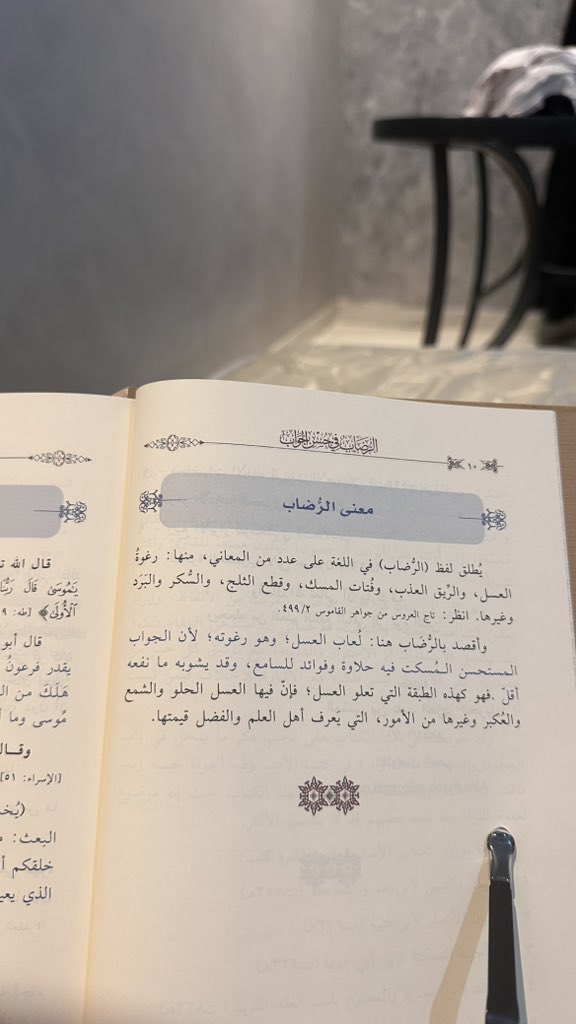 الرُّضَاب في حُسْن الجَوَاب
١٠
معنى الرُّضاب
يُطلق لفظ (الرُّضاب) في اللغة على عدد من المعاني، منها: رغوةُ
العسل، والرِّيق العذب، وفُتات المسك، وقطع الثلج، والسُّكر والبَرَد
وغيرها. انظر: تاج العروس من جواهر القاموس ٤٩٩/٢.
وأقصد بالرُّضَاب هنا: لُعاب العسل؛ وهو رغوته؛ لأن الجواب
المستحسن المُسكت فيه حلاوة وفوائد للسامع، وقد يشوبه ما نفعه
أقلّ .فهو كهذه الطبقة التي تعلو العسل؛ فإنّ فيها العسل الحلو والشمع
والعُكبر وغيرها من الأمور، التي يَعرف أهل العلم والفضل قيمتها.
قال الله
يَٰمُوسَىٰ قَالَ رَبُّنَا
ٱلْأُولَىٰ﴾ [طه:
قال أبو
يقدر فرعونُ
هَلَكَ من
مُوسى وما
وقال
[الإسراء: ٥١]
البعث:
خلقكم
الذي